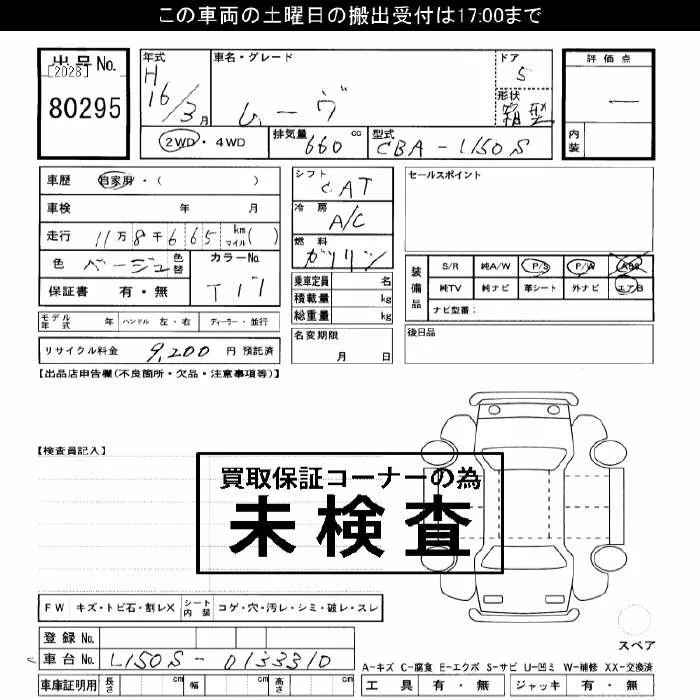 この車両の土曜日の搬出受付は17:00まで
出品No.
[2028]
80295
年式
H
16/3月
車名・グレード
ムーヴ
ドア
5
形状
箱型
評価点
―
内装
2WD・4WD
排気量
660 cc
型式
CBA-L150S
車歴 自家用・( )
車検 年 月
走行 11万8千665 km マイル( )
色 ベージュ 色替
カラーNo.
T17
保証書 有・無
シフト
CAT
冷房
A/C
燃料
ガソリン
乗車定員 名
積載量 kg
総重量 kg
セールスポイント
装備品
S/R 純A/W P/S P/W ABS
純TV 純ナビ 革シート 外ナビ エアB
ナビ型番:
モデル年式 年 ハンドル 左・右 ディーラー・並行
名変期限
月 日
後日品
リサイクル料金 9,200 円 預託済
【出品店申告欄(不良箇所・欠品・注意事項等)】
【検査員記入】
買取保証コーナーの為
未検査
FW キズ・トビ石・割レX シート内装 コゲ・穴・汚レ・シミ・破レ・スレ
スペア
登録No.
車台No. L150S-0133310
A-キズ C-腐食 E-エクボ S-サビ U-凹ミ W-補修 XX-交換済
車庫証明用 長さ cm 幅 cm 高さ cm
工具 有・無 ジャッキ 有・無